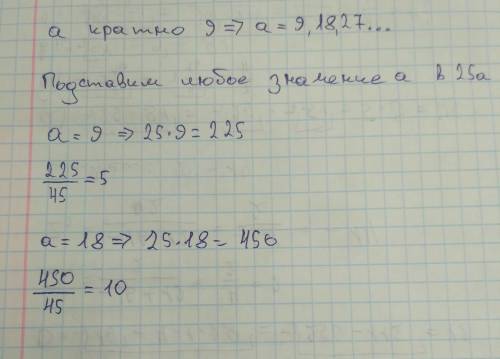 а кратно 9 => а = 9, 18, 27...
Подставим любое значение а в 25а
а = 9 => 25·9 = 225
225/45 = 5
а = 18 => 25·18 = 450
450/45 = 10